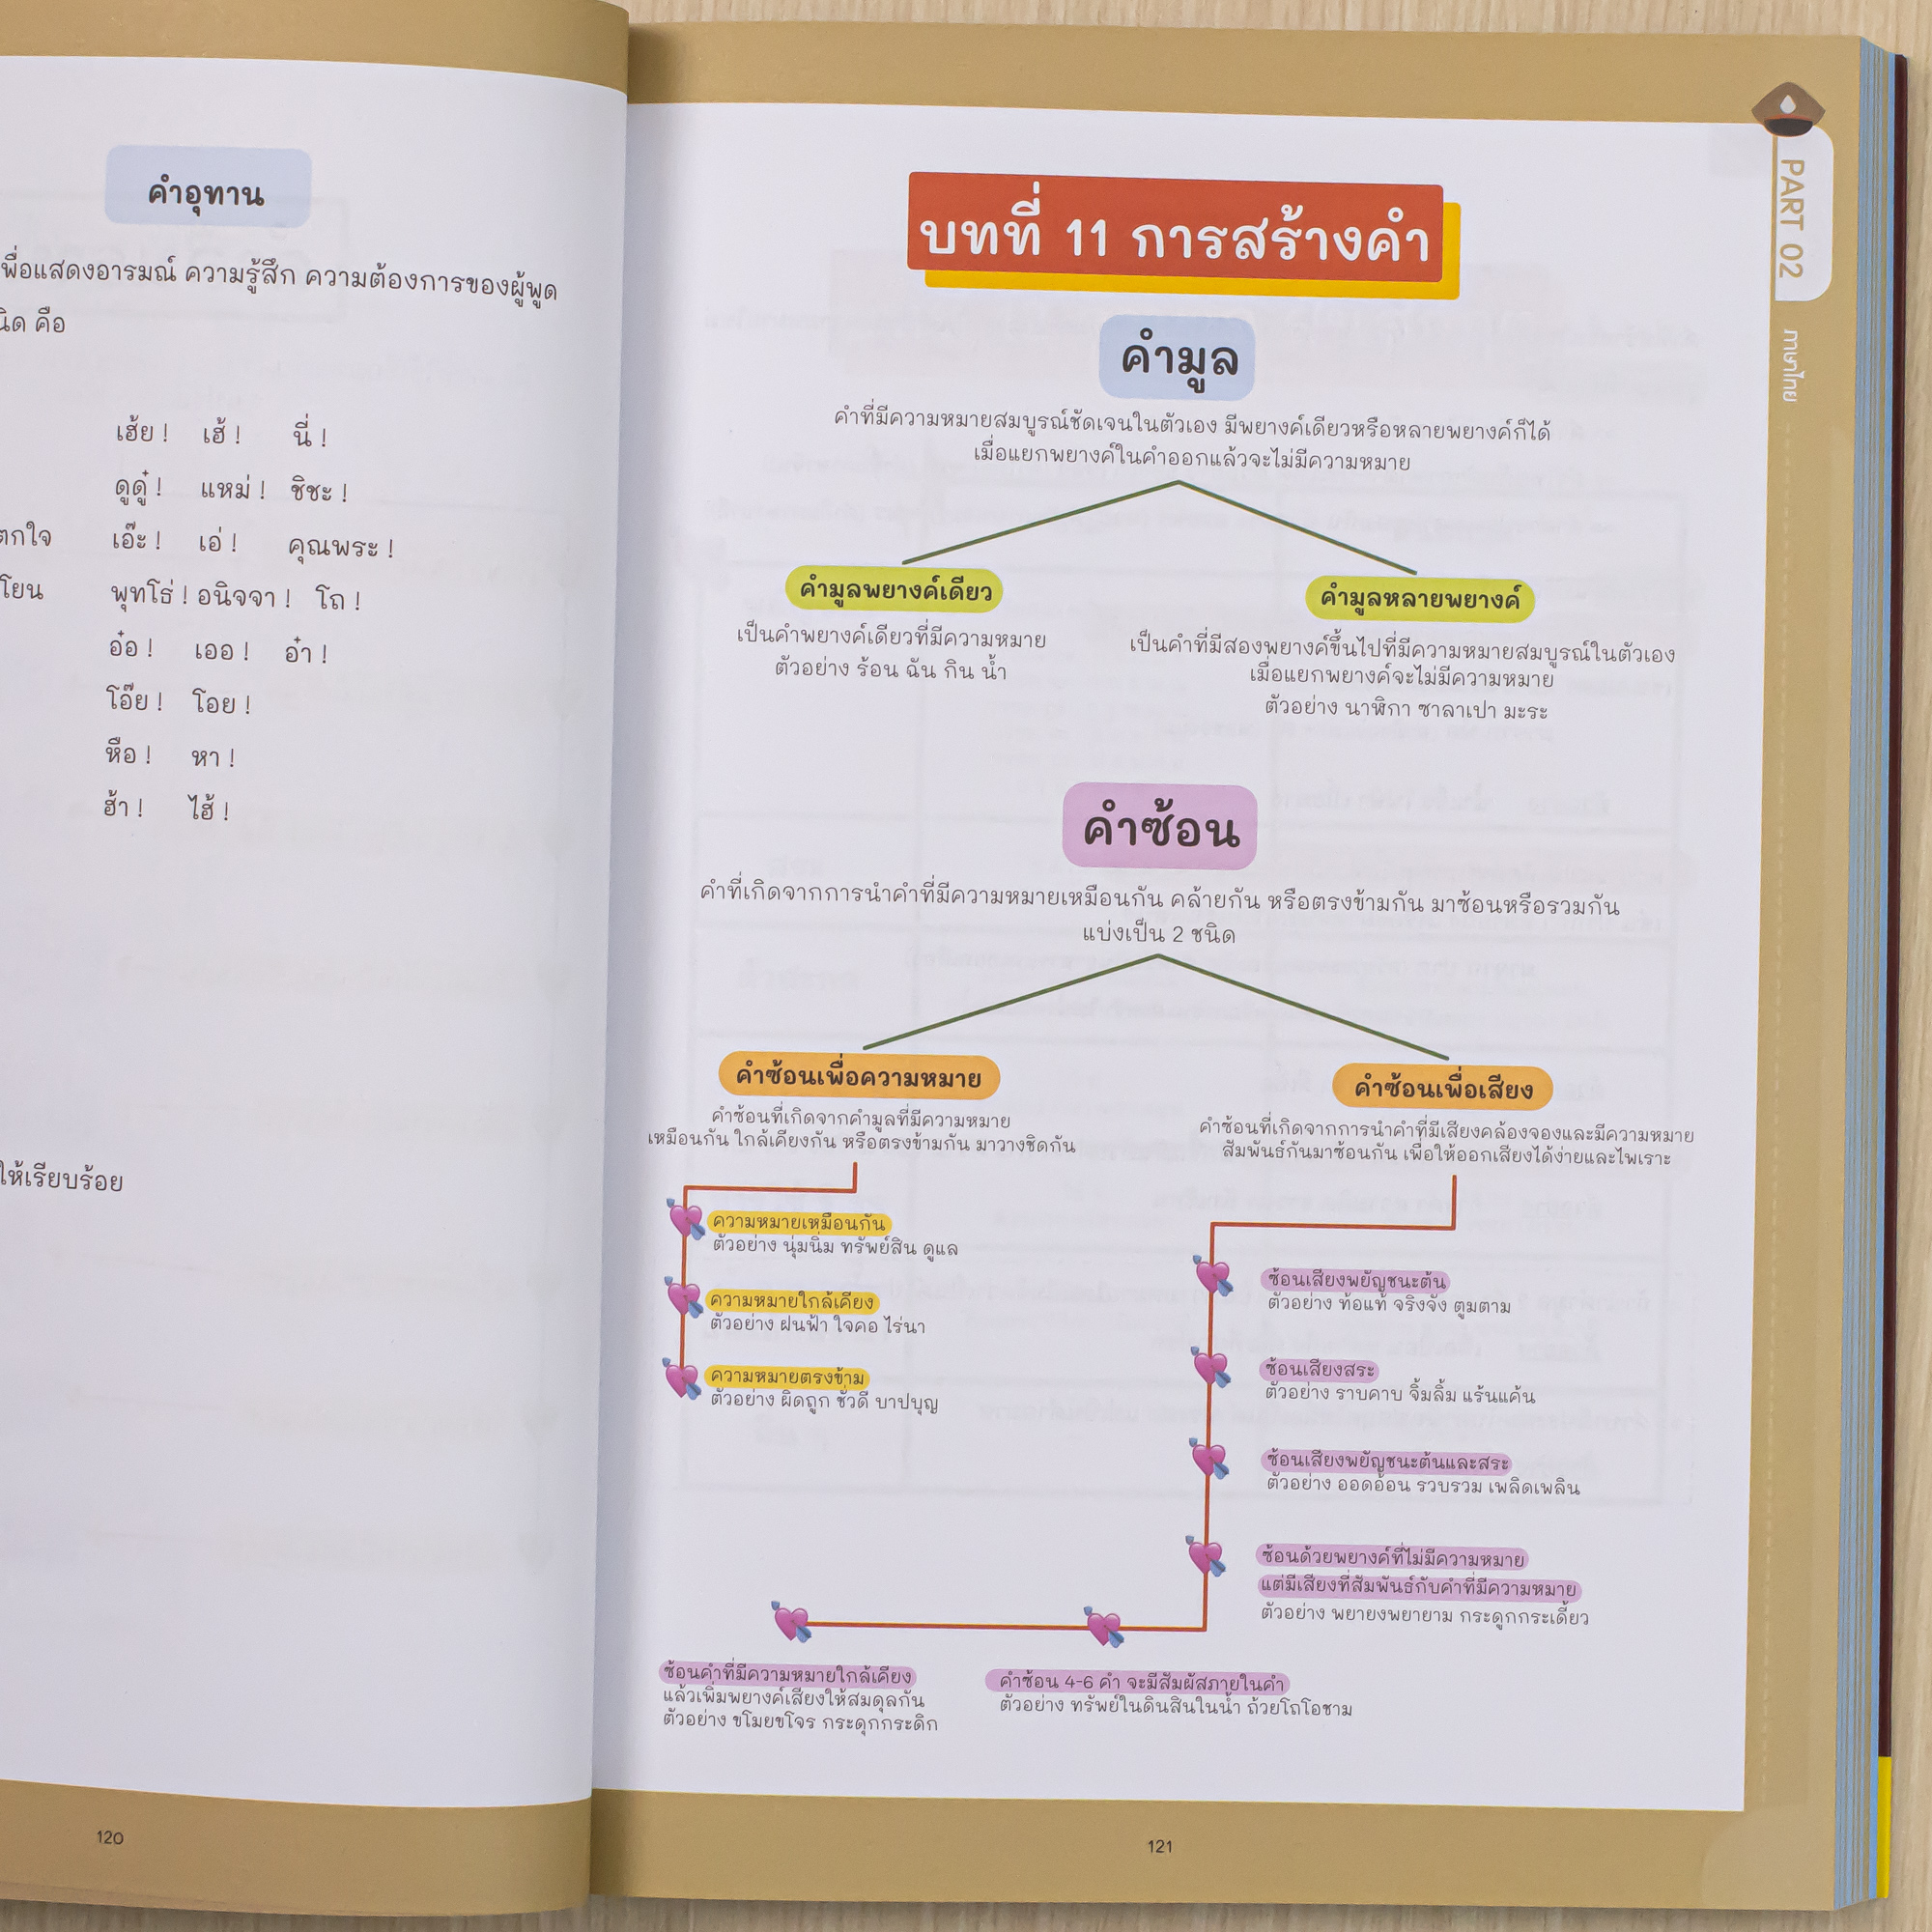 คำอุทาน
พื่อแสดงอารมณ์ ความรู้สึก ความต้องการของผู้พูด
นิด คือ
เฮ้ย ! เฮ้ ! นี่ !
ดูดู๋ ! แหม่ ! ชิชะ !
ตกใจ เอ๊ะ ! เอ่ ! คุณพระ !
โยน พุทโธ่ ! อนิจจา ! โถ !
อ๋อ ! เออ ! อ๋า !
โอ๊ย ! โอย !
หือ ! หา !
ฮ้า ! ไฮ้ !
ให้เรียบร้อย
120
PART 02
ภาษาไทย
บทที่ 11 การสร้างคำ
คำมูล
คำที่มีความหมายสมบูรณ์ชัดเจนในตัวเอง มีพยางค์เดียวหรือหลายพยางค์ก็ได้
เมื่อแยกพยางค์ในคำออกแล้วจะไม่มีความหมาย
คำมูลพยางค์เดียว
เป็นคำพยางค์เดียวที่มีความหมาย
ตัวอย่าง ร้อน ฉัน กิน น้ำ
คำมูลหลายพยางค์
เป็นคำที่มีสองพยางค์ขึ้นไปที่มีความหมายสมบูรณ์ในตัวเอง
เมื่อแยกพยางค์จะไม่มีความหมาย
ตัวอย่าง นาฬิกา ซาลาเปา มะระ
คำซ้อน
คำที่เกิดจากการนำคำที่มีความหมายเหมือนกัน คล้ายกัน หรือตรงข้ามกัน มาซ้อนหรือรวมกัน
แบ่งเป็น 2 ชนิด
คำซ้อนเพื่อความหมาย
คำซ้อนที่เกิดจากคำมูลที่มีความหมาย
เหมือนกัน ใกล้เคียงกัน หรือตรงข้ามกัน มาวางชิดกัน
ความหมายเหมือนกัน
ตัวอย่าง นุ่มนิ่ม ทรัพย์สิน ดูแล
ความหมายใกล้เคียง
ตัวอย่าง ฝนฟ้า ใจคอ ไร่นา
ความหมายตรงข้าม
ตัวอย่าง ผิดถูก ชั่วดี บาปบุญ
คำซ้อนเพื่อเสียง
คำซ้อนที่เกิดจากการนำคำที่มีเสียงคล้องจองและมีความหมาย
สัมพันธ์กันมาซ้อนกัน เพื่อให้ออกเสียงได้ง่ายและไพเราะ
ซ้อนเสียงพยัญชนะต้น
ตัวอย่าง ท้อแท้ จริงจัง ตูมตาม
ซ้อนเสียงสระ
ตัวอย่าง ราบคาบ จิ้มลิ้ม แร้นแค้น
ซ้อนเสียงพยัญชนะต้นและสระ
ตัวอย่าง ออดอ้อน รวบรวม เพลิดเพลิน
ซ้อนด้วยพยางค์ที่ไม่มีความหมาย
แต่มีเสียงที่สัมพันธ์กับคำที่มีความหมาย
ตัวอย่าง พยายงพยายาม กระดูกกระเดี้ยว
ซ้อนคำที่มีความหมายใกล้เคียง
แล้วเพิ่มพยางค์เสียงให้สมดุลกัน
ตัวอย่าง ขโมยขโจร กระดุกกระดิก
คำซ้อน 4-6 คำ จะมีสัมผัสภายในคำ
ตัวอย่าง ทรัพย์ในดินสินในน้ำ ถ้วยโถโอชาม
121